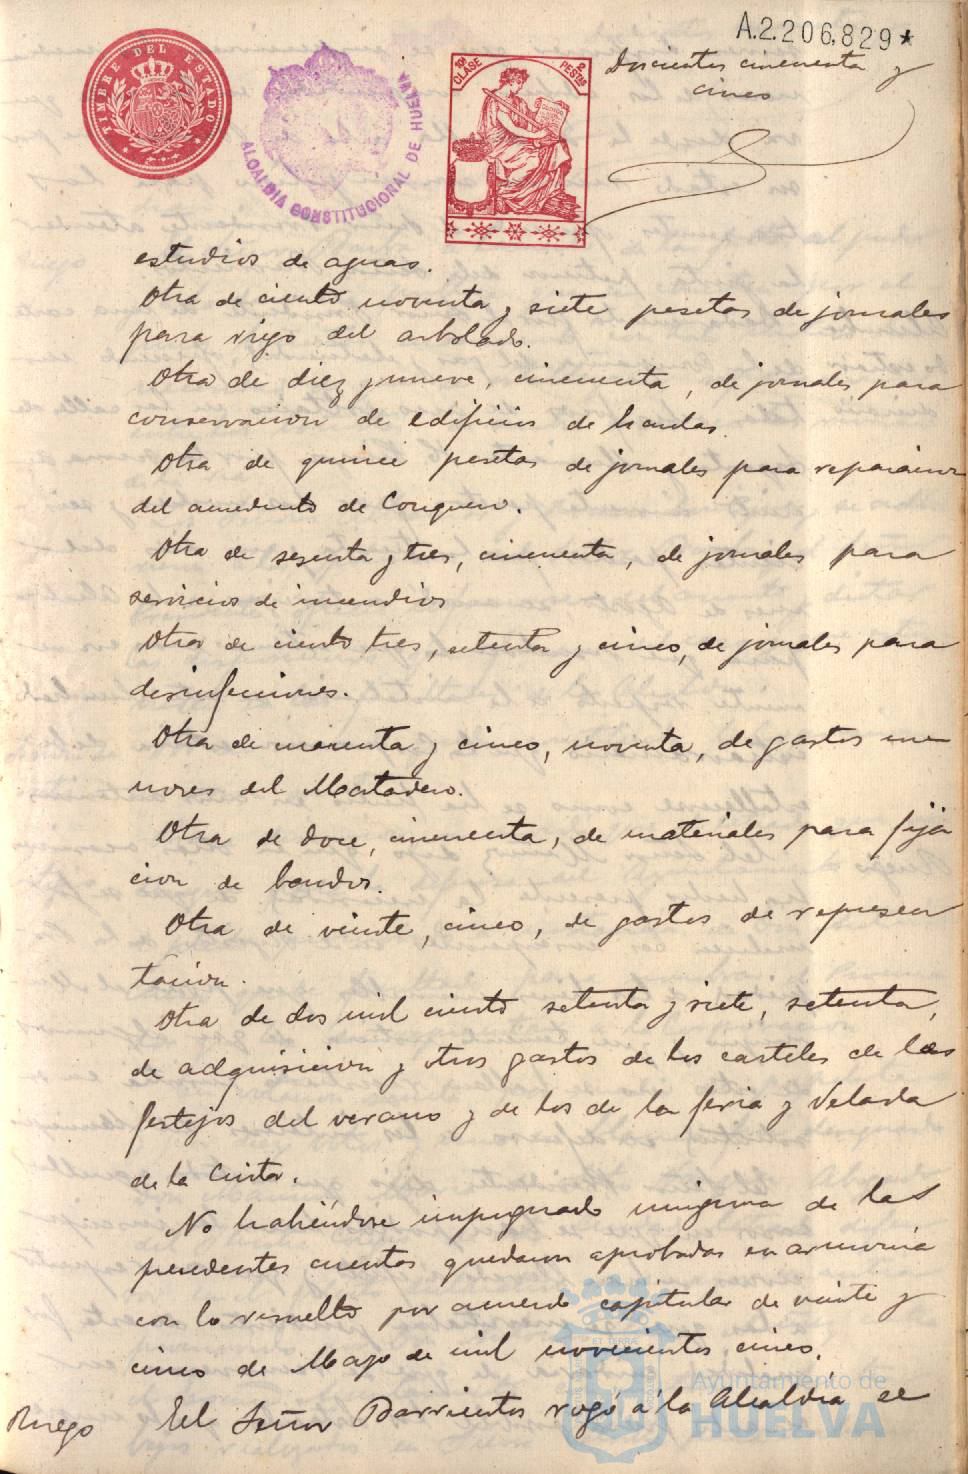 A.2.206,829*
TIMBRE DEL ESTADO
ALCALDIA CONSTITUCIONAL DE HUELVA
10ª CLASE
2 PESETAS
Doscientos cincuenta y
cinco
estudios de aguas.
Otra de ciento noventa y siete pesetas de jornales
para riego del arbolado.
Otra de diez y nueve, cincuenta, de jornales para
conservacion de edificios de
Otra de quince pesetas de jornales para reparacion
del acueducto de Conquero.
Otra de sesenta y tres, cincuenta, de jornales para
servicios de incendios
Otra de ciento tres, setenta y cinco, de jornales para
desinfecciones.
Otra de cuarenta y cinco, noventa, de gastos me
nores del Matadero.
Otra de doce, cincuenta, de materiales para fija
cion de bandos.
Otra de veinte, cinco, de gastos de represen
tacion.
Otra de dos mil ciento setenta y siete, setenta,
de adquisicion y otros gastos de los carteles de los
festejos del verano y de los de la feria y Velada
de la Cinta.
No habiéndose impugnado ninguna de las
precedentes cuentas quedaron aprobadas en armonia
con lo resuelto por acuerdo capitular de veinte y
cinco de Mayo de mil novecientos cinco.
Ruego
El Señor Barrientos rogó á la Alcaldía se
Ayuntamiento de
HUELVA